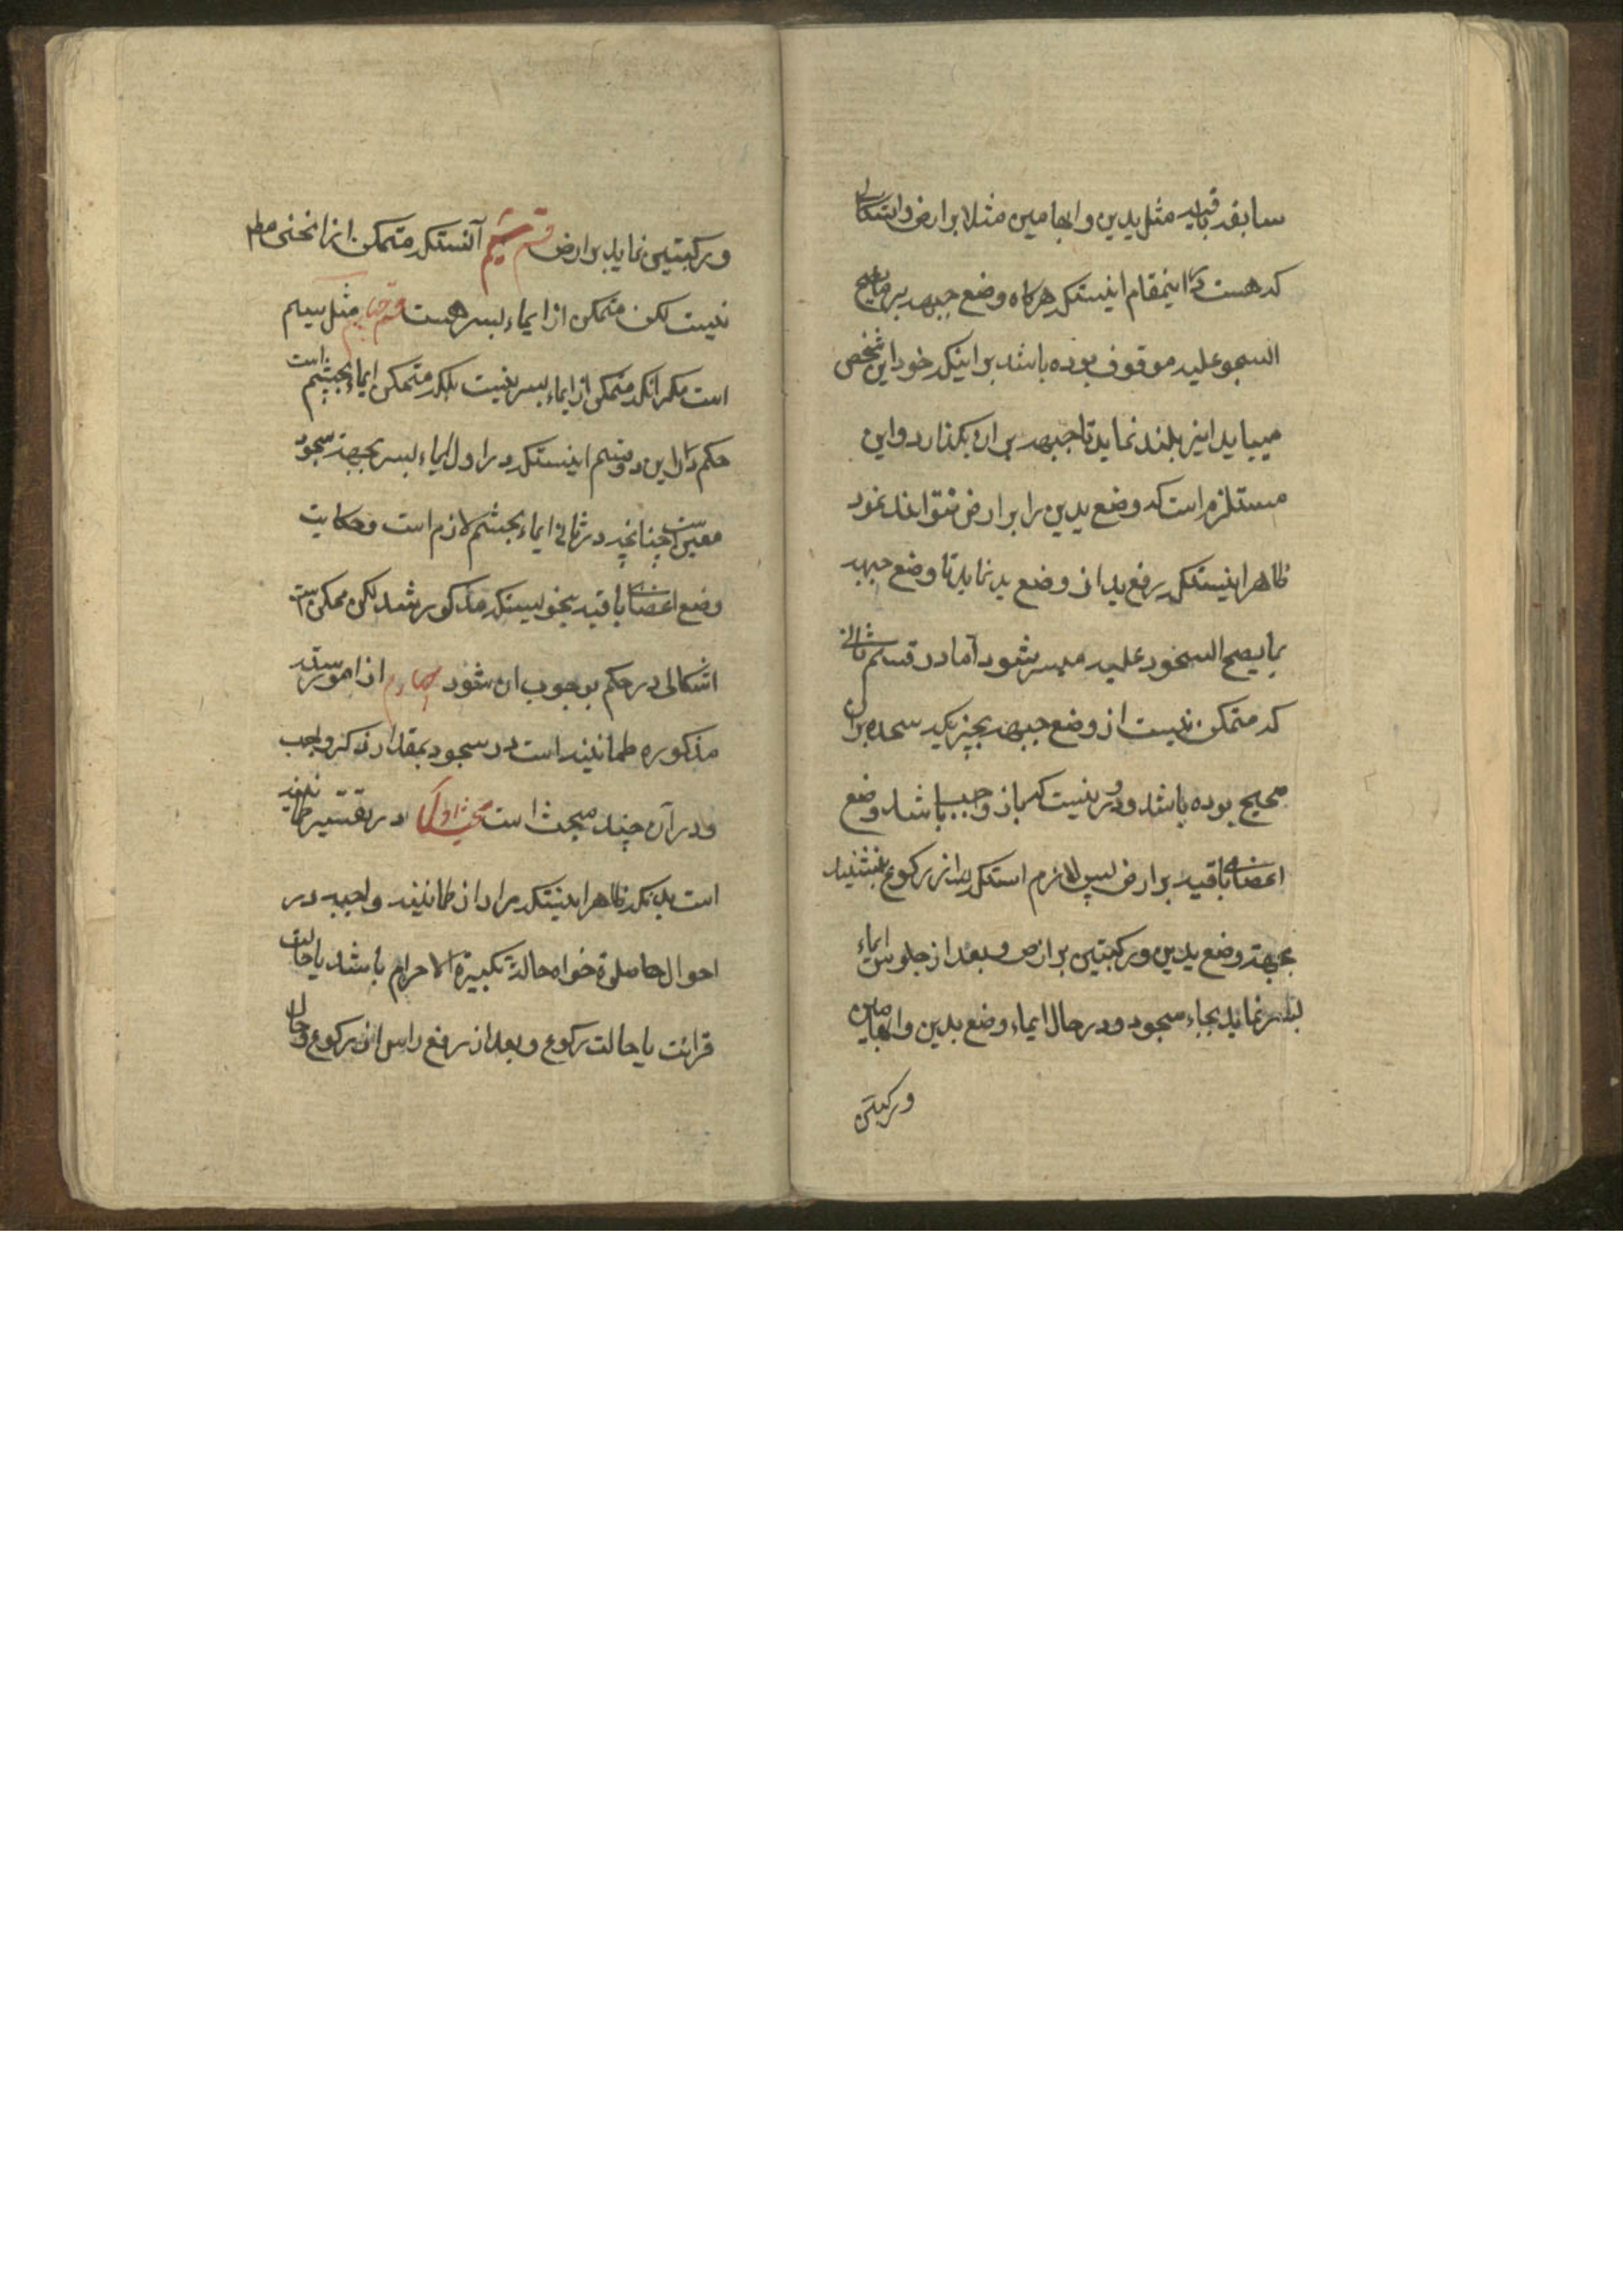 سابقه باقیه مثل یدین و ابهامین مثلا بر ارض و اشکالی
که هست در اینمقام اینستکه هرگاه وضع جبهه بر ما یصح
السجود علیه موقوف بوده باشد بر اینکه خود این شخص
میباید انیر بلند نماید تا جبهه بر ان بگذارد و این
مستلزم است که وضع یدین را بر ارض نتواند نمود
ظاهر اینستکه رفع ید از وضع ید نماید تا وضع جبهه
بما یصح السجود علیه میسر شود اما در قسم ثانی
که متمکن نیست از وضع جبهه بچیزیکه سجده بر ان
صحیح بوده باشد و دور نیست که باز واجب باشد وضع
اعضای باقیه بر ارض پس لازم استکه بعد از رکوع بنشیند
بجهة وضع یدین و رکبتین بر ارض و بعد از جلوس ایماء
بسر نماید بجاء سجود و در حال ایماء وضع یدین و ابهامین
و رکبتین
و رکبتین نماید بر ارض قسم سیم آنستکه متمکن از انحنی مطلقا
نیست لکن متمکن از ایماء بسر هست قسم چهارم مثل سیم
است مگر انکه متمکن از ایماء بسر نیست بلکه متمکن ایماء بچشم است
حکم در این دو قسم اینستکه در اول ایماء بسر بجهة سجود
معین است چنانچه در ثانی ایماء بچشم لازم است و حکایت
وضع اعضای باقیه بنحویستکه مذکور شد لکن ممکن است
اشکالی در حکم بوجوب ان شود چهارم از امور سته
مذکوره طمانینه است در سجود بمقدار ذکر واجب
و در آن چند مبحث است مبحث اول در تفسیر طمانینه
است بدانکه ظاهر اینستکه مراد از طمانینه واجبه در
احوال صلوة خواه حالة تکبیرة الاحرام باشد یا حالت
قرائت یا حالت رکوع و بعد از رفع راس از رکوع و حال